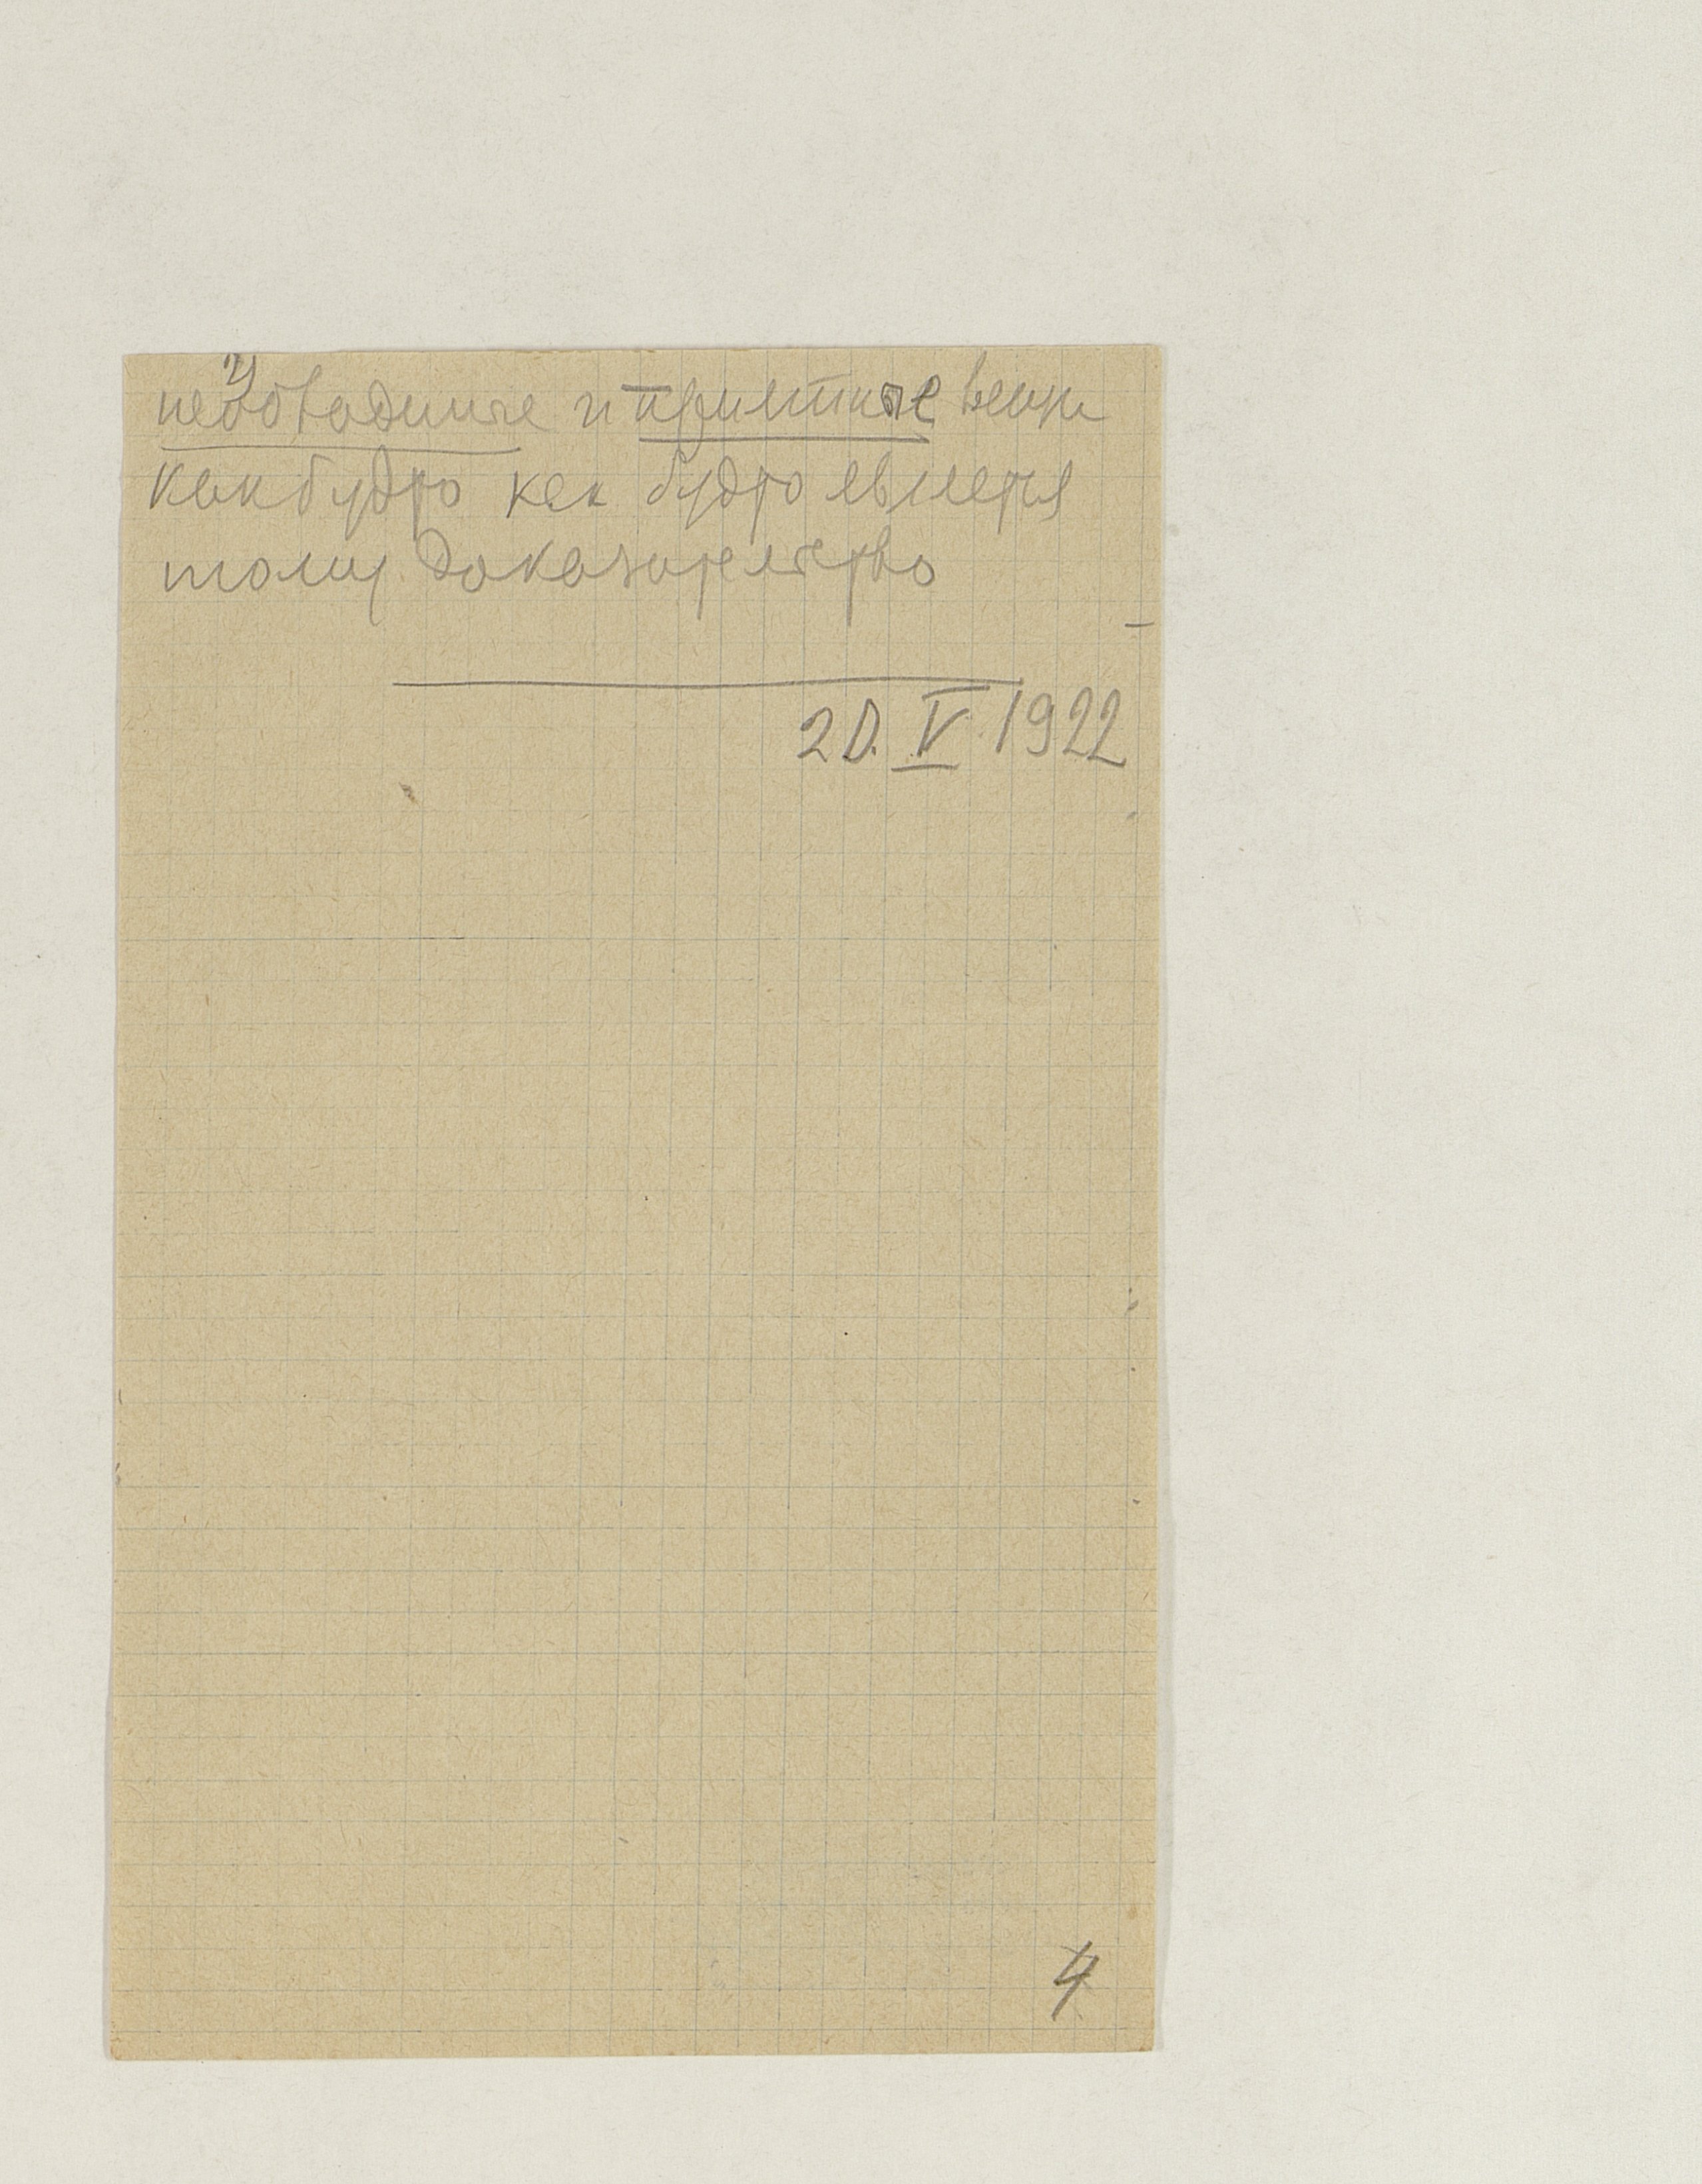 необходимые и приятные вещи
как будто как будто является
тому доказательство
20. V 1922
4